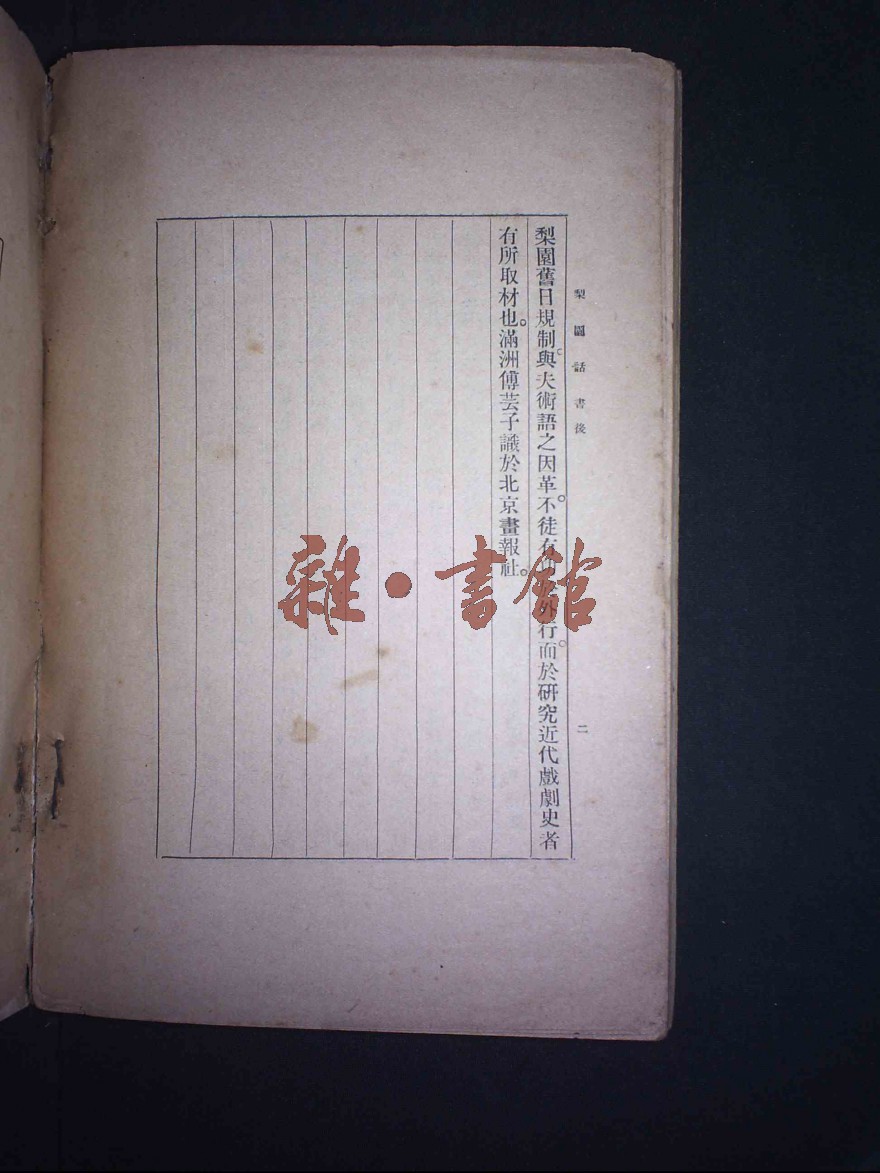 梨園話書後
二
梨園舊日規制。與夫術語之因革。不徒有外行。而於研究近代戲劇史者
有所取材也。滿洲傅芸子識於北京畫報社。
雜·書館